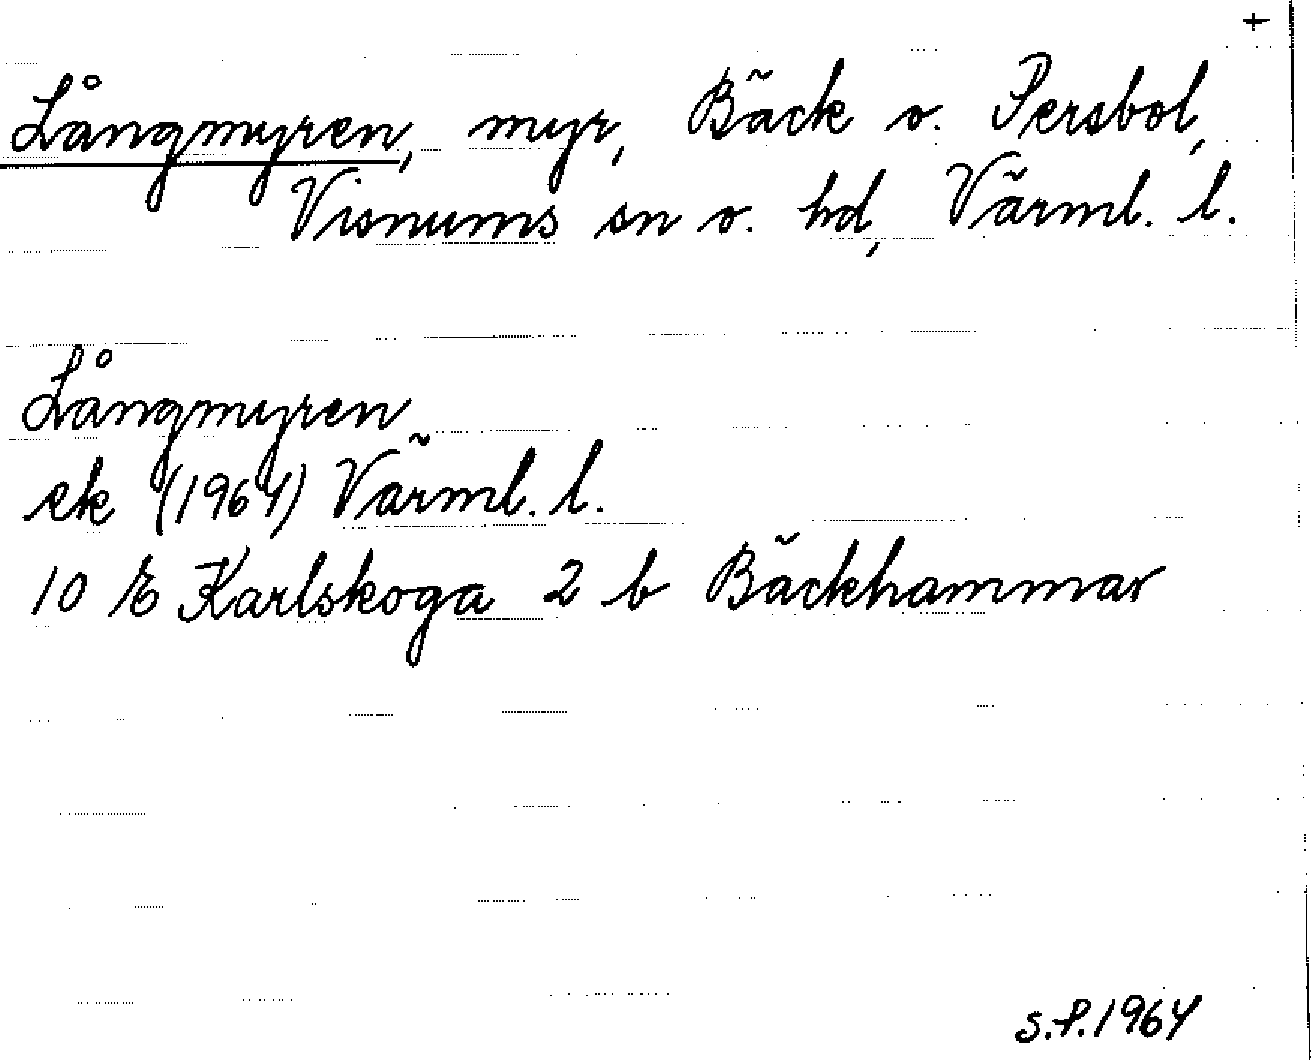 +
Långmyren, myr, Bäck o. Persbol,
Visnums sn o. hd, Värml. l.
Långmyren
ek (1964) Värml. l.
10 E Karlskoga 2 b Bäckhammar
S.P.1964